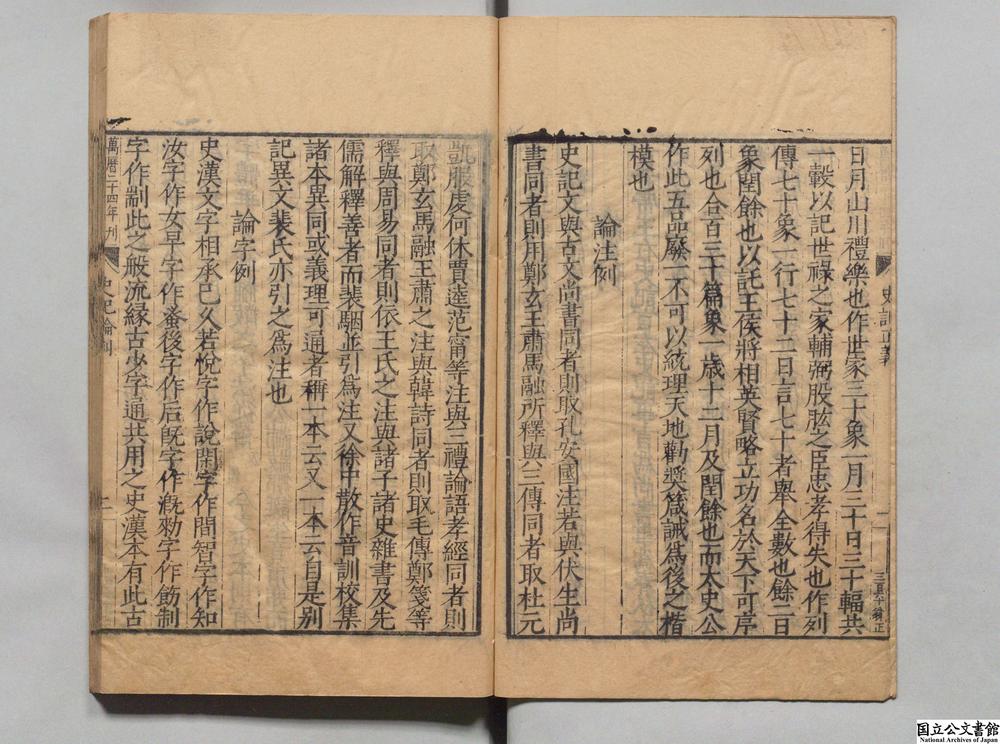 日月山川禮樂也作世家三十象一月三十日三十輻共
一轂以記世祿之家輔弼股肱之臣忠孝得失也作列
傳七十象一行七十二日言七十者舉全數也餘二日
象閏餘也以託王侯將相英賢略立功名於天下可序
列也合百三十篇象一歲十二月及閏餘也而太史公
作此五品廢一不可以統理天地勸奬箴誡爲後之楷
模也
論注例
史記文與古文尚書同者則取孔安國注若與伏生尚
書同者則用鄭玄王肅馬融所釋與三傳同者取杜元
凱服虔何休賈逵范甯等注與三禮論語孝經同者則
取鄭玄馬融王肅之注與韓詩同者則取毛傳鄭箋等
釋與周易同者則依王氏之注與諸子諸史雜書及先
儒解釋善者而裴駰並引爲注又徐中散作音訓校集
諸本異同或義理可通者稱一本云又一本云自是別
記異文裴氏亦引之爲注也
論字例
史漢文字相承已久若悅字作說閑字作間智字作知
汝字作女早字作蚤後字作后旣字作漑勑字作飭制
字作剬此之般流緣古少字通共用之史漢本有此古
史記正義
一
萬曆二十四年刊
史記論例
二
国立公文書館
National Archives of Japan